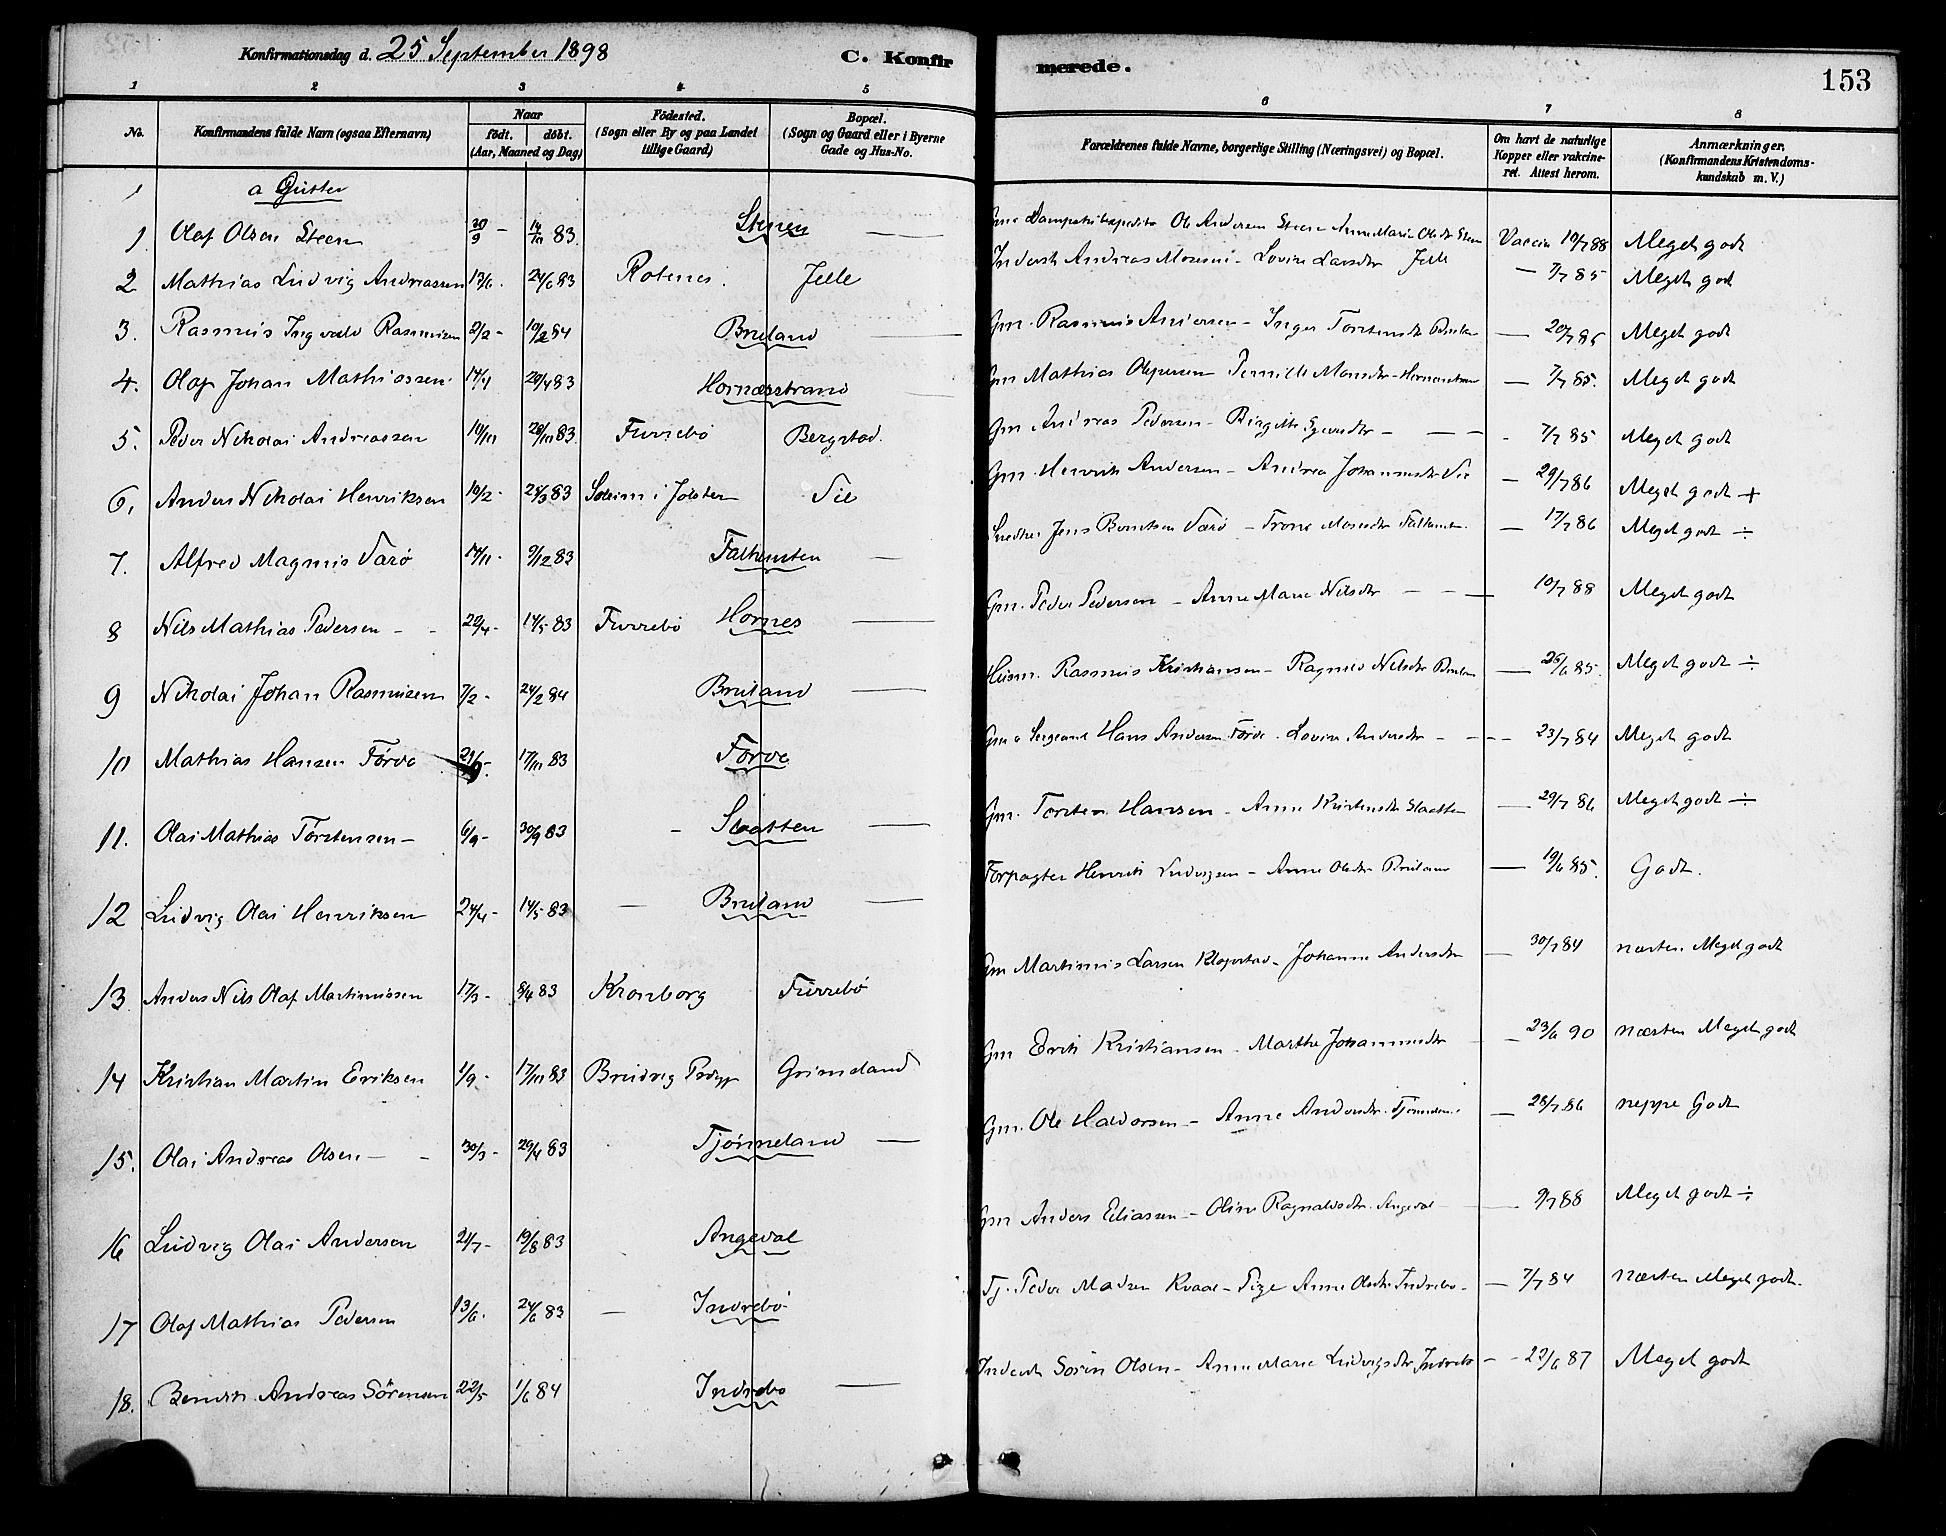 Konfirmationsdag d. 25 September 1898 C. Konfirmerede. 153
1 2 3 4 5 6 7 8
No. Konfirmandens fulde Navn (ogsaa Efternavn) Naar födt. döbt. (Aar, Maaned og Dag) Födested. (Sogn eller By og paa Landet tillige Gaard) Bopæl. (Sogn og Gaard eller i Byerne Gade og Hus-No. Forældrenes fulde Navne, borgerlige Stilling (Næringsvei) og Bopæl. Om havt de naturlige Kopper eller vakcineret. Attest herom. Anmærkninger. (Konfirmandens Kristendomskundskab m. V.)
a Gutter
1 Olaf Olsen Steen 30/9 - 14/10 83. Stenen — Ole Andersen Steen Anne Marie Olsdtr Steen Vaccin 19/7 88 Meget godt
2 Mathias Ludvig Andreassen 13/6. 24/6 83 Rotenes. Jelle Inderst Andreas - Lovise Larsdtr Jelle — 7/7 85 Meget god
3. Rasmus Ingvald Rasmusen 2/2 - 10/2 84 Bruland — Gm. Rasmus Andersen - Inger Torstensdtr — 20/7 85 Meget godt
4. Olaf Johan Mathiassen 14/4 29/4 83 Hornæsstrand — Gm Mathias Pernille Monsdtr - — 7/7 85. Meget godt
5. Peder Nikolai Andreassen 10/10 28/10 83. Furrebö Bergstad. Gm Andreas Pedersen - Birgitte — - 7/7 85 Meget godt
6. Anders Nikolai Henriksen 10/2 - 24/3 83 Soleim i Jölster Vie Gm. Henrik Andersen - Andrea Johannesdtr Vie — 29/7 86 Meget godt +
7. Alfred Magnus Varö 14/11 - 9/12 83 Falkensten — Jens Bendiksen Varö - Trone Monsdtr — 17/7 86 Meget godt ÷
8 Nils Mathias Pedersen - - 22/4 - 14/5 83 Furrebö Hornes — Gm. Peder Pedersen - Anne Marie Nilsdtr - - — 10/7 88 Meget godt
9 Nikolai Johan Rasmusen 7/2 - 24/2 84 Bruland — Husm. Rasmus Kristiansen - Ragnild Nilsdtr — 25/6 85. Meget godt ÷
10 Mathias Hansen Förde 17/10 83 Förde Gm o Sergeant Hans Andersen Förde - Lovise Andersdtr - - - 23/7 84 Meget godt
11. Olai Mathias Torstensen - 6/9 - 30/9 83 - Slaatten — Gm. Torsten Hansen - Anne Kristensdtr Slaatten — 29/7 86 Meget godt ÷
12 Ludvig Olai Henriksen 24/4 - 14/5 83 — Bruland — Forpagter Henrik Ludvigsen - Anne Olsdtr Bruland — 19/6 85. Godt.
13 Anders Nils Olaf Martinussen 17/3 - 8/4 83 Kronborg Furrebö Gm Martinus Larsen Klopstad - Johanne Andersdtr — 30/7 84 næsten Meget godt
14 Kristian Martin Eriksen 1/9 - 17/10 83 Brudvig Grimeland Gm Erik Kristiansen - Marthe Johannesdtr - 23/6 90 næsten Meget godt
15. Olai Andreas Olsen - - 30/3 - 29/4 83 Tjönneland — Gm. Ole Haldorsen - Anne Andersdtr. — 28/7 86 neppe Godt
16 Ludvig Olai Andersen 21/7 - 19/8 83 - Angedal Gm Anders Eliassen - Oline Ragnaldsdtr. Angedal — 9/7 88 Meget godt ÷
17 Olaf Mathias Pedersen 13/6. 24/6 83 — Indrebö Tj. Peder Madsen Kvaal - Pige Anne Olsdtr Indrebö - — 7/7 84 næsten Meget godt.
18. Bendik Andreas Sörensen 22/5 1/6 84 Indrebö — Inderst Sörin Olsen - Anne Marie Ludvigsdtr Indrebö - - 22/6 87 Meget godt